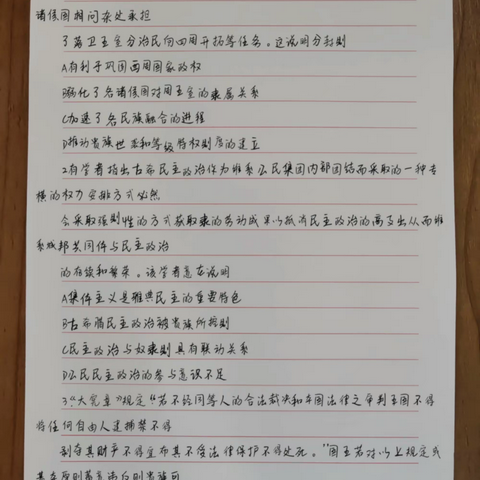 诸侯国相间杂处承担
了荡卫王室分治民向四周开拓等任务。这说明分封制
A有利于巩固西周国家政权
B弱化了各诸侯国对周王室的隶属关系
C加速了各民族融合的进程
D推动贵族世袭和等级特权制度的建立
2有学者指出古希民主政治作为维系公民集团内部团结而采取的一种专
横的权力安排方式必然
会采取强制性的方式获取隶的劳动成果以抵消民主政治的高支出从而维
系城邦共同体与民主政治
的存续和繁荣。该学者意在说明
A集体主义是雅典民主的重要特色
B古希腊民主政治被贵族所控制
C民主政治与奴隶制具有联动关系
D公民民主政治的参与意识不足
3"大宪章"规定"若不经同等人的合法裁决和本国法律之审判王国不得
将任何自由人逮捕禁不得
剥夺其财产不得宣布其不受法律保护不得处死。"国王若对以上规定或
其在原则蓄意违反则贵族可